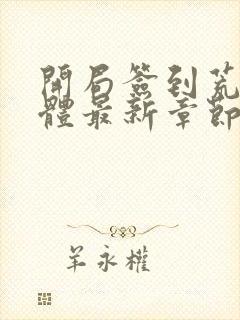 開局簽到荒
體最新章節
羊永權